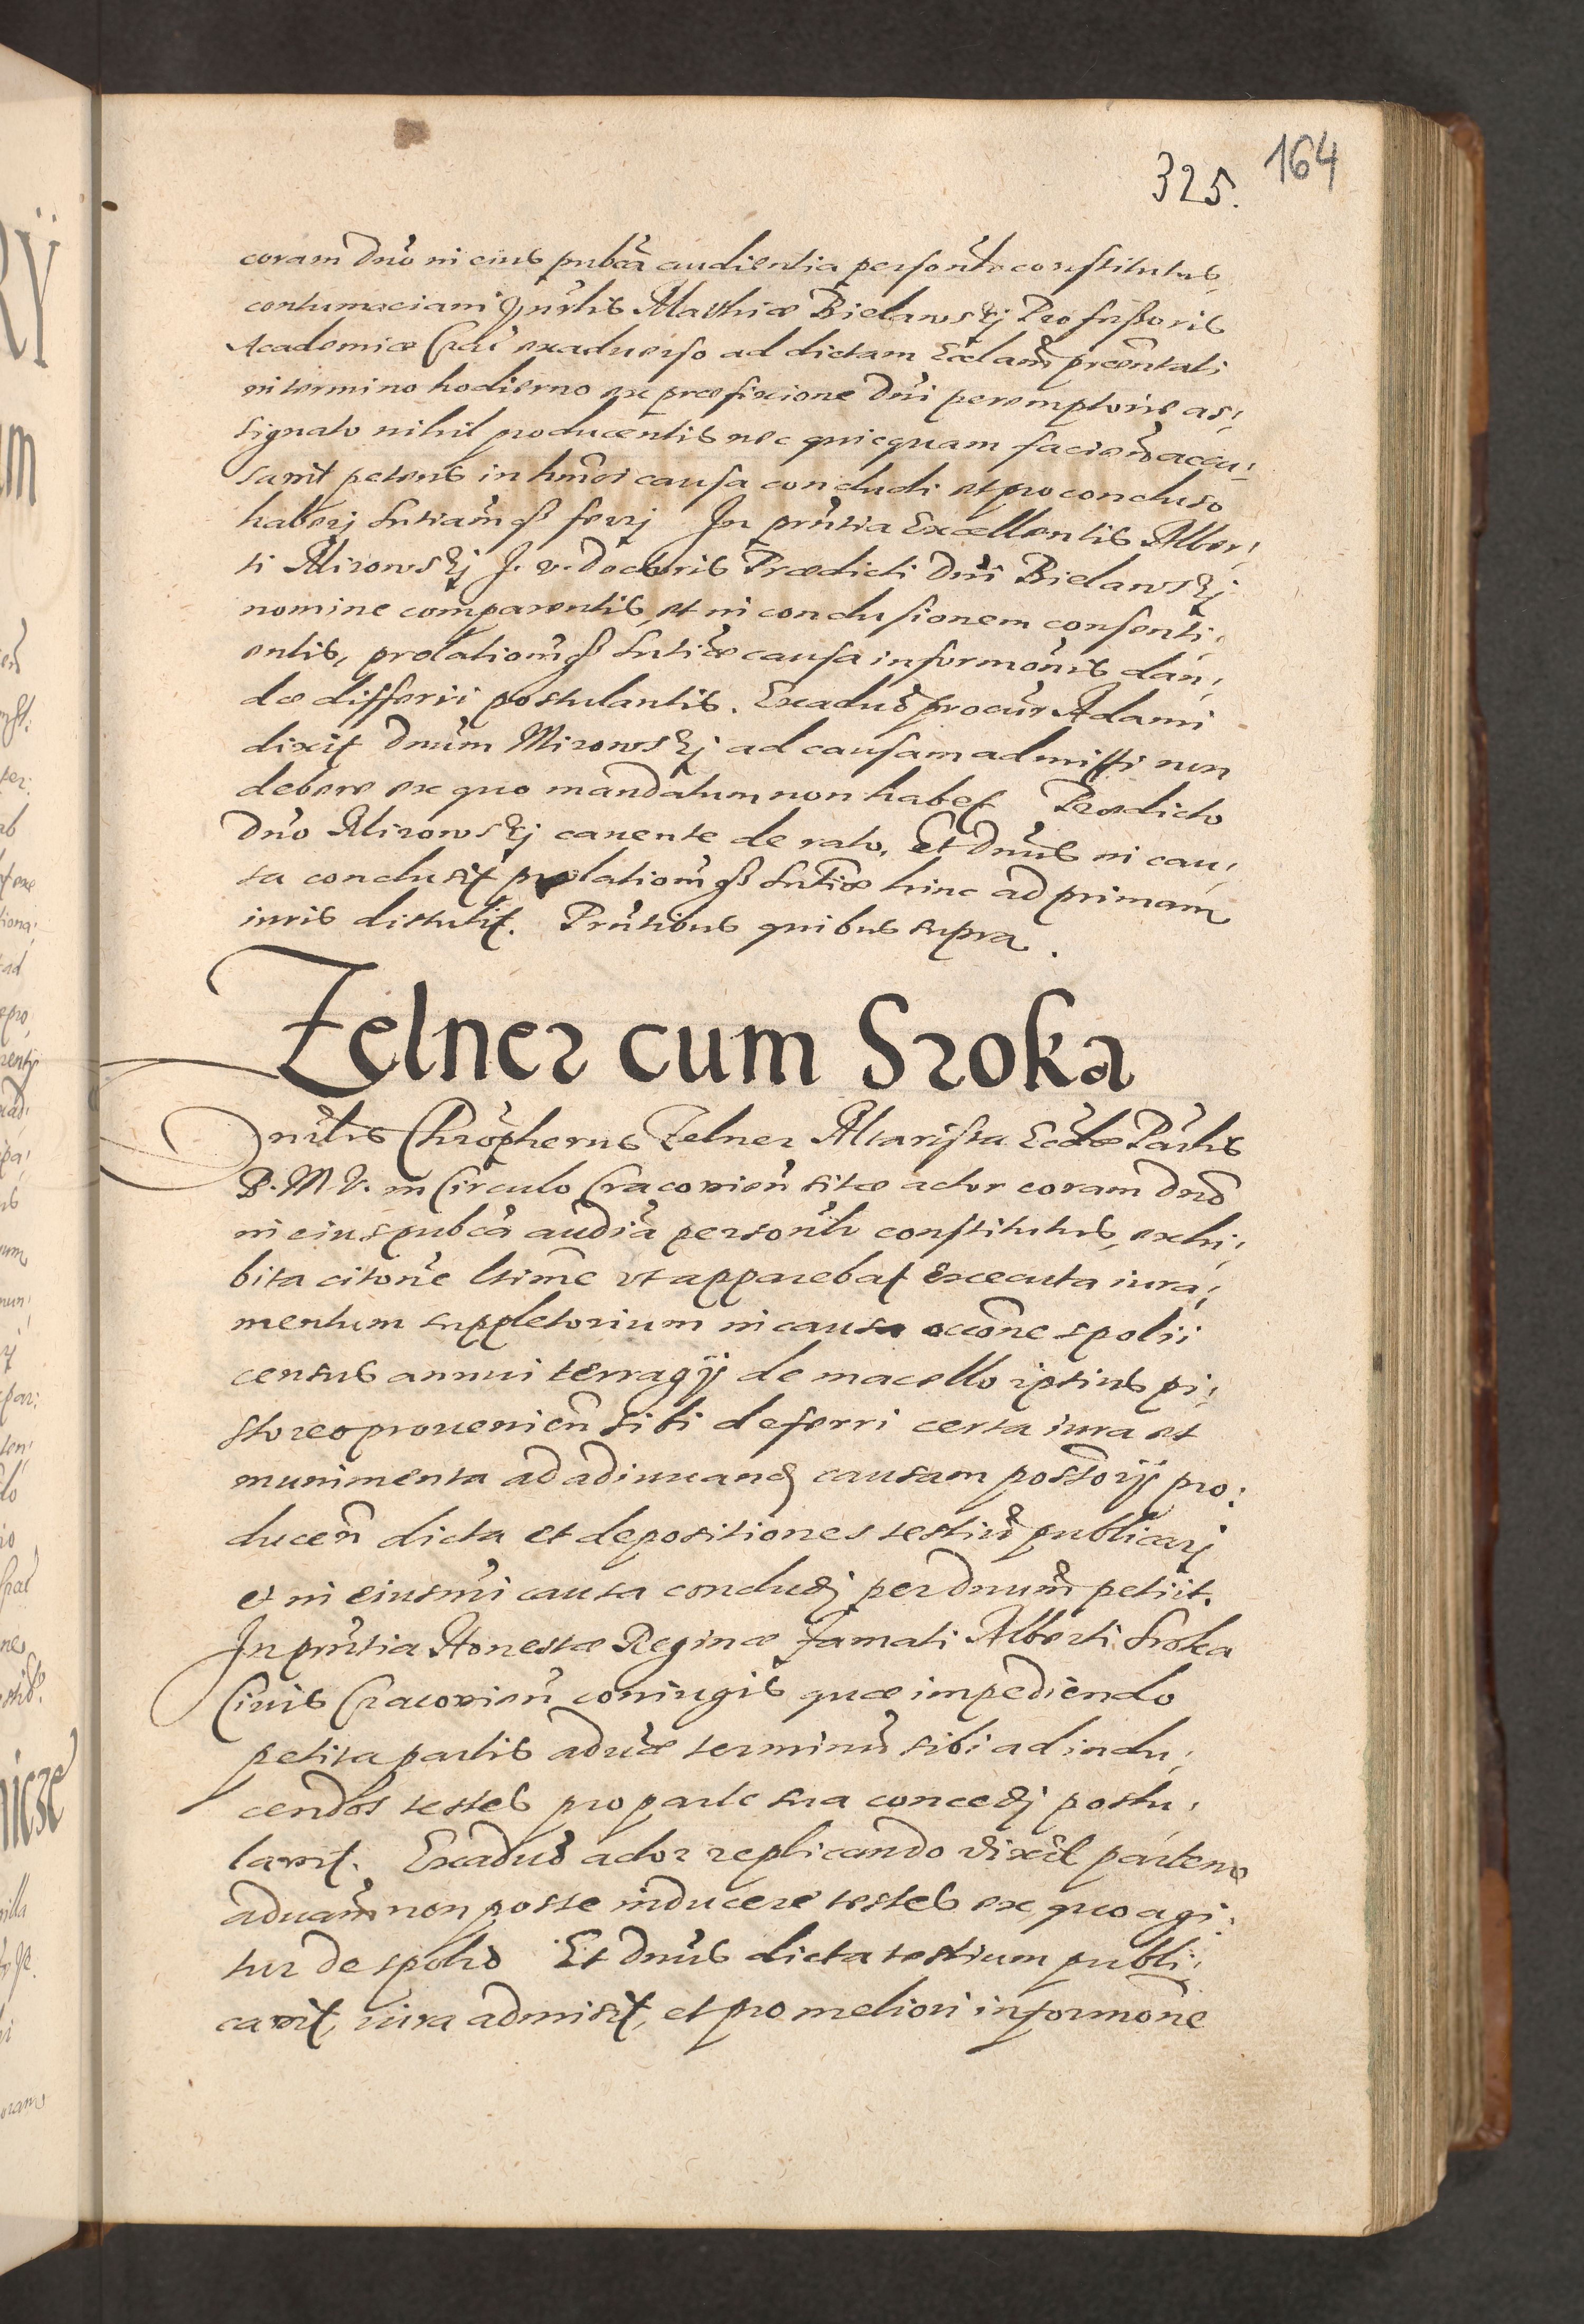 325. 164
coram Dno in eius pubca audientia personlr constitutus,
contumaciam Hnrlis Mathiæ Bielawskj Professoris
Academiæ Crac exaduerso ad dictam Ecclam præntati
in termino hodierno ex præfixione Dni peremptorie as:
signato nihil producentis nec quicquam facien accu:
sauit petens in hmoi causa concludi et pro concluso
haberj sntiamqȝ ferrj In prntia Excellentis Alber:
ti Mirowskj J. V. Doctoris Prædicti Dni Bielawskj
nomine comparentis, et in conclusionem consenti:
entis, prolationemqȝ sntiæ causa informonis dan:
dæ differri postulantis. Exaduo procur Adami
dixit Dnum Mirowskj ad causam admitti non
debere ex quo mandatum non habet Prædicto
Dno Mirowskj cauente de rato. Et Dnus in cau:
sa conclusit prolationemqȝ sntiæ hinc ad primam
iuris distulit. Prntibus quibus supra.
Zelner cum Sroka
Hnrlis Chropherus Zelner Altarista Ecclæ Parlis
B. M. V. in Circulo Cracovien sitæ actor coram Dno
in eius pubca audia personlr constitutus, exhi:
bita citone ltime vt apparebat executa iura:
mentum suppletorium in causa occone spolii
census annui terragij de macello ipsius pi:
storeo prouenien sibi deferri certa iura et
munimenta ad adiuuand causam possorij pro:
ducen dicta et depositiones testiu publicarj
et in eiusmi causa concludj per Dnum petiit.
In prntia Honestæ Reginæ Famati Alberti Sroka
Ciuis Cracovien coniugis quæ impediendo
petita partis aduæ terminu sibi ad indu:
cendos testes pro parte sua concedj postu:
lauit. Exaduo actor replicando dixit partem
aduam non posse inducere testes ex quo agi:
tur de spolio Et Dnus dicta testium publi:
cauit, iura admisit, et pro meliori informone